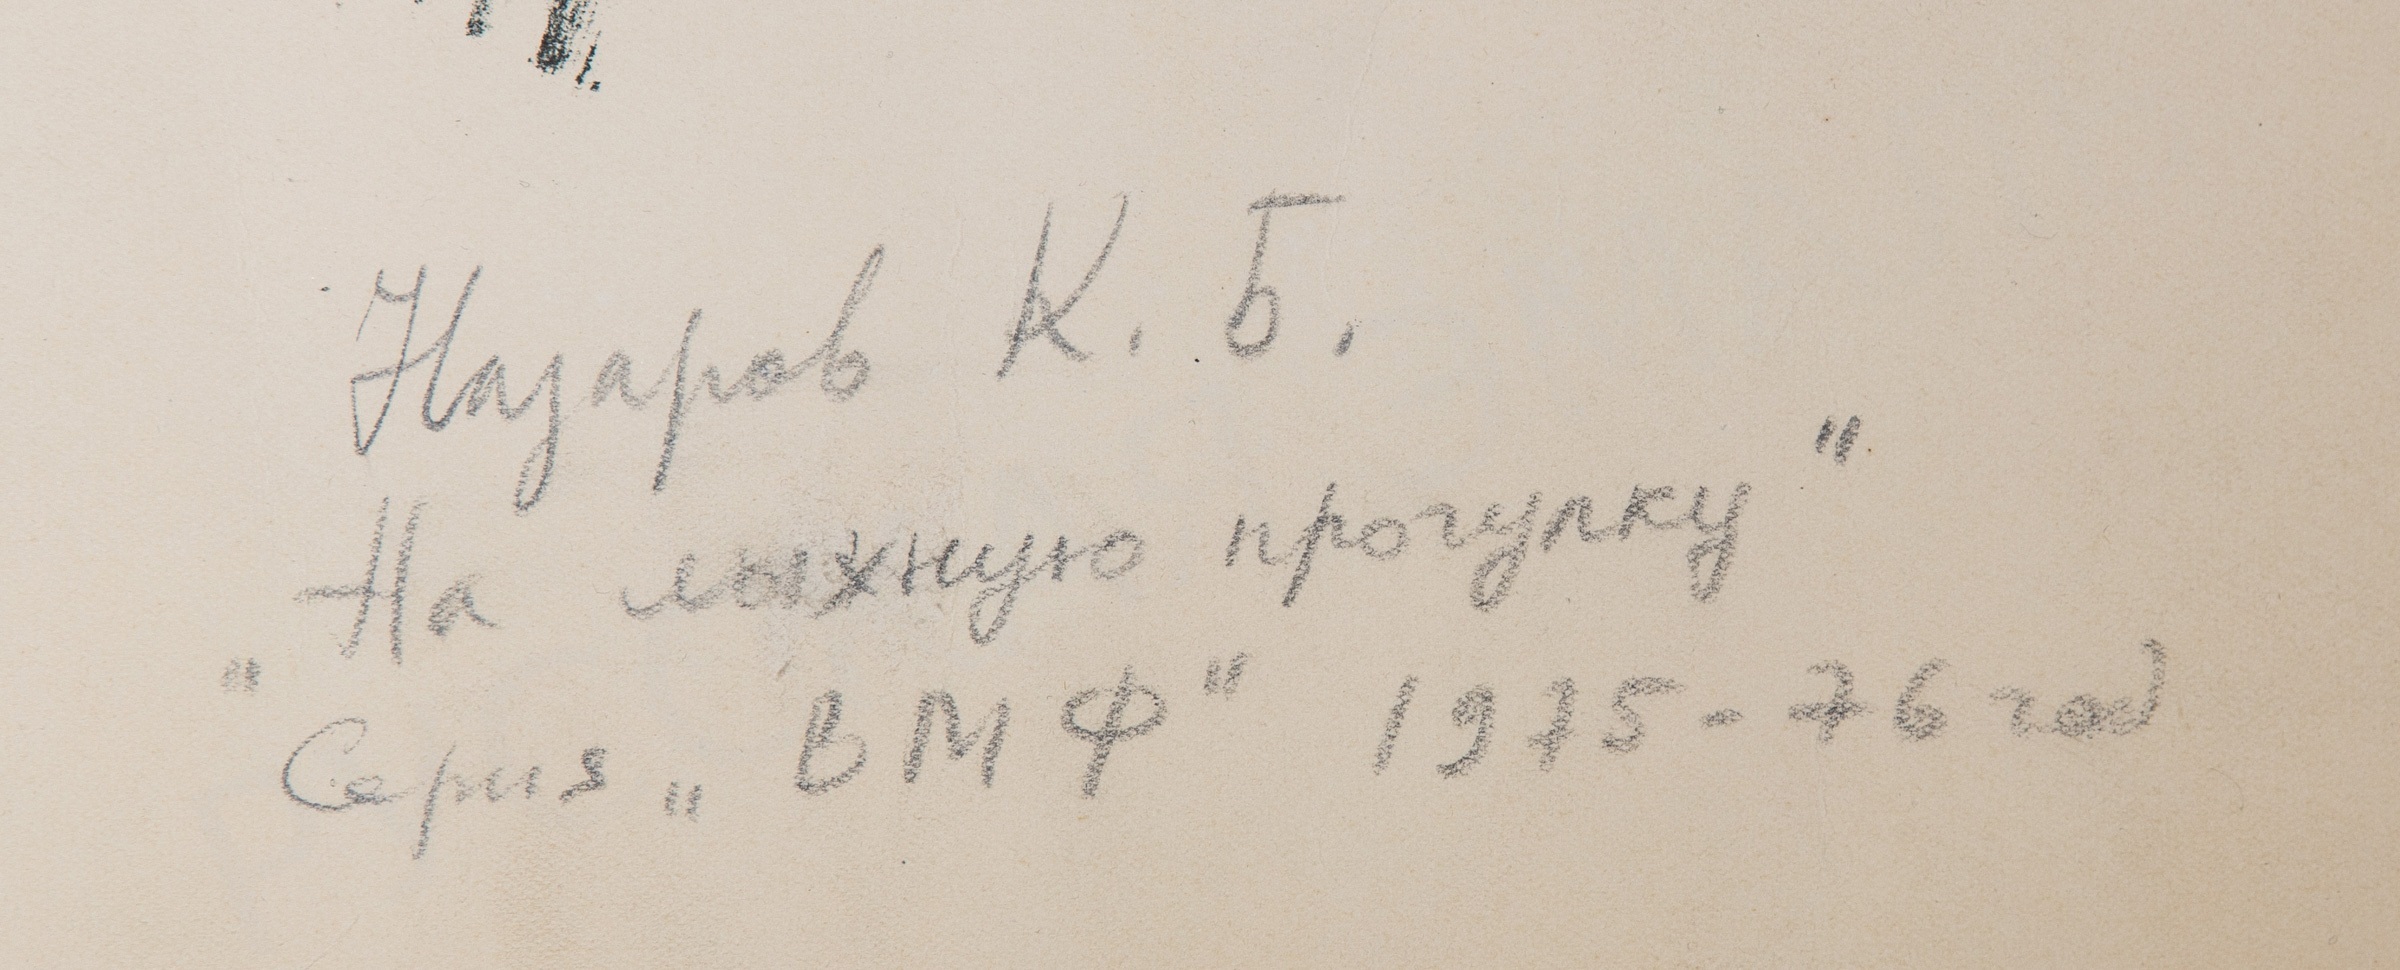 Назаров К. Б.
На лыжную прогулку"
"Серия „ВМФ" 1975-76 год